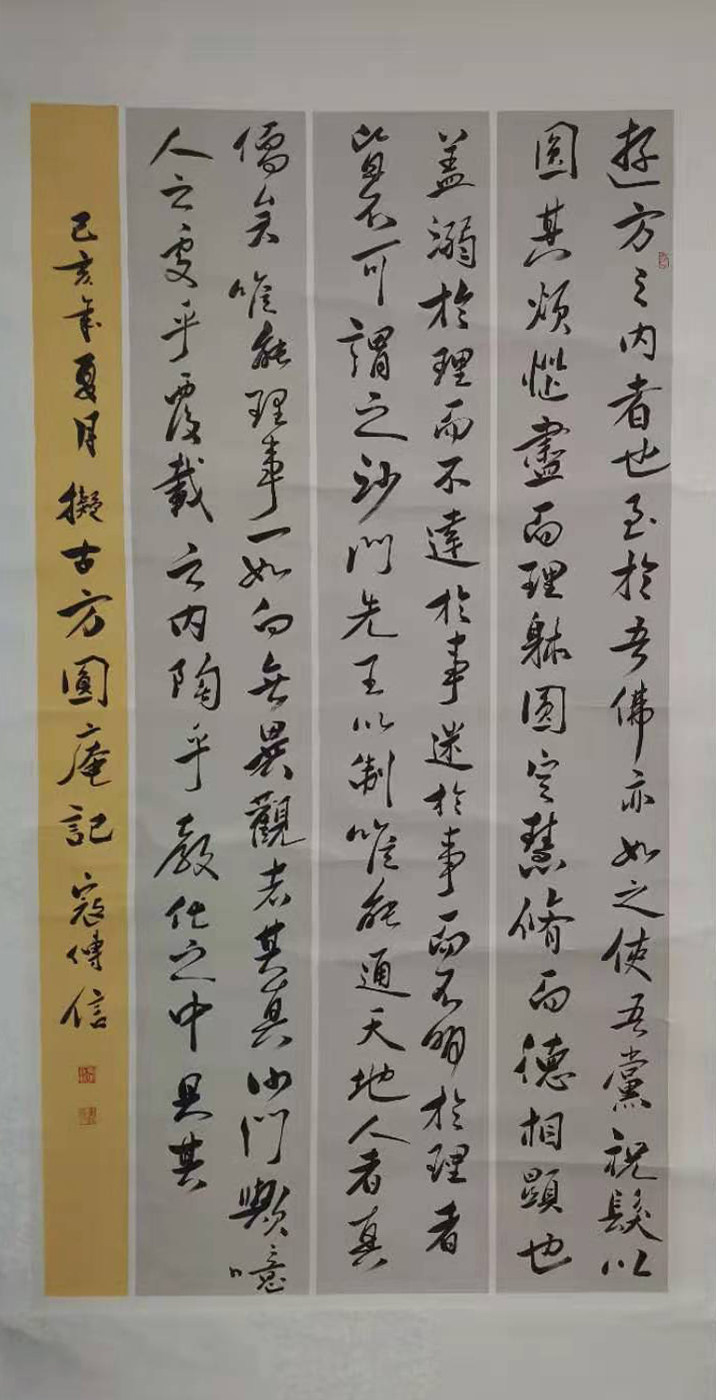 遊方之内者也至於吾佛亦如之使吾黨祝髮以
圓其煩惱盡而理躰圓定慧脩而德相顯也
盖溺於理而不達於事迷於事而不明於理者
皆不可謂之沙門先王以制唯能通天地人者真
儒矣唯能理事一如向無異觀者其真沙門歟噫
人之處乎覆載之内陶乎教化之中具其
己亥年夏月擬古方圓庵記寇傳信